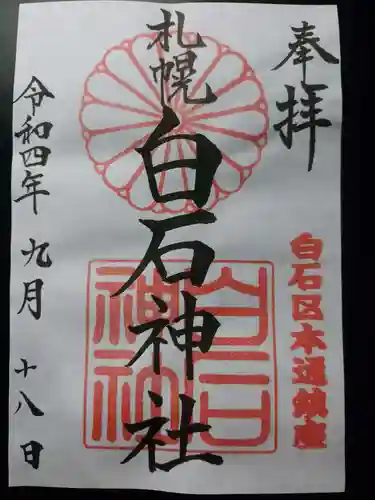 奉拝
白石区本通鎮座
札幌
白石神社
白石神社
令和四年 九月 十八日